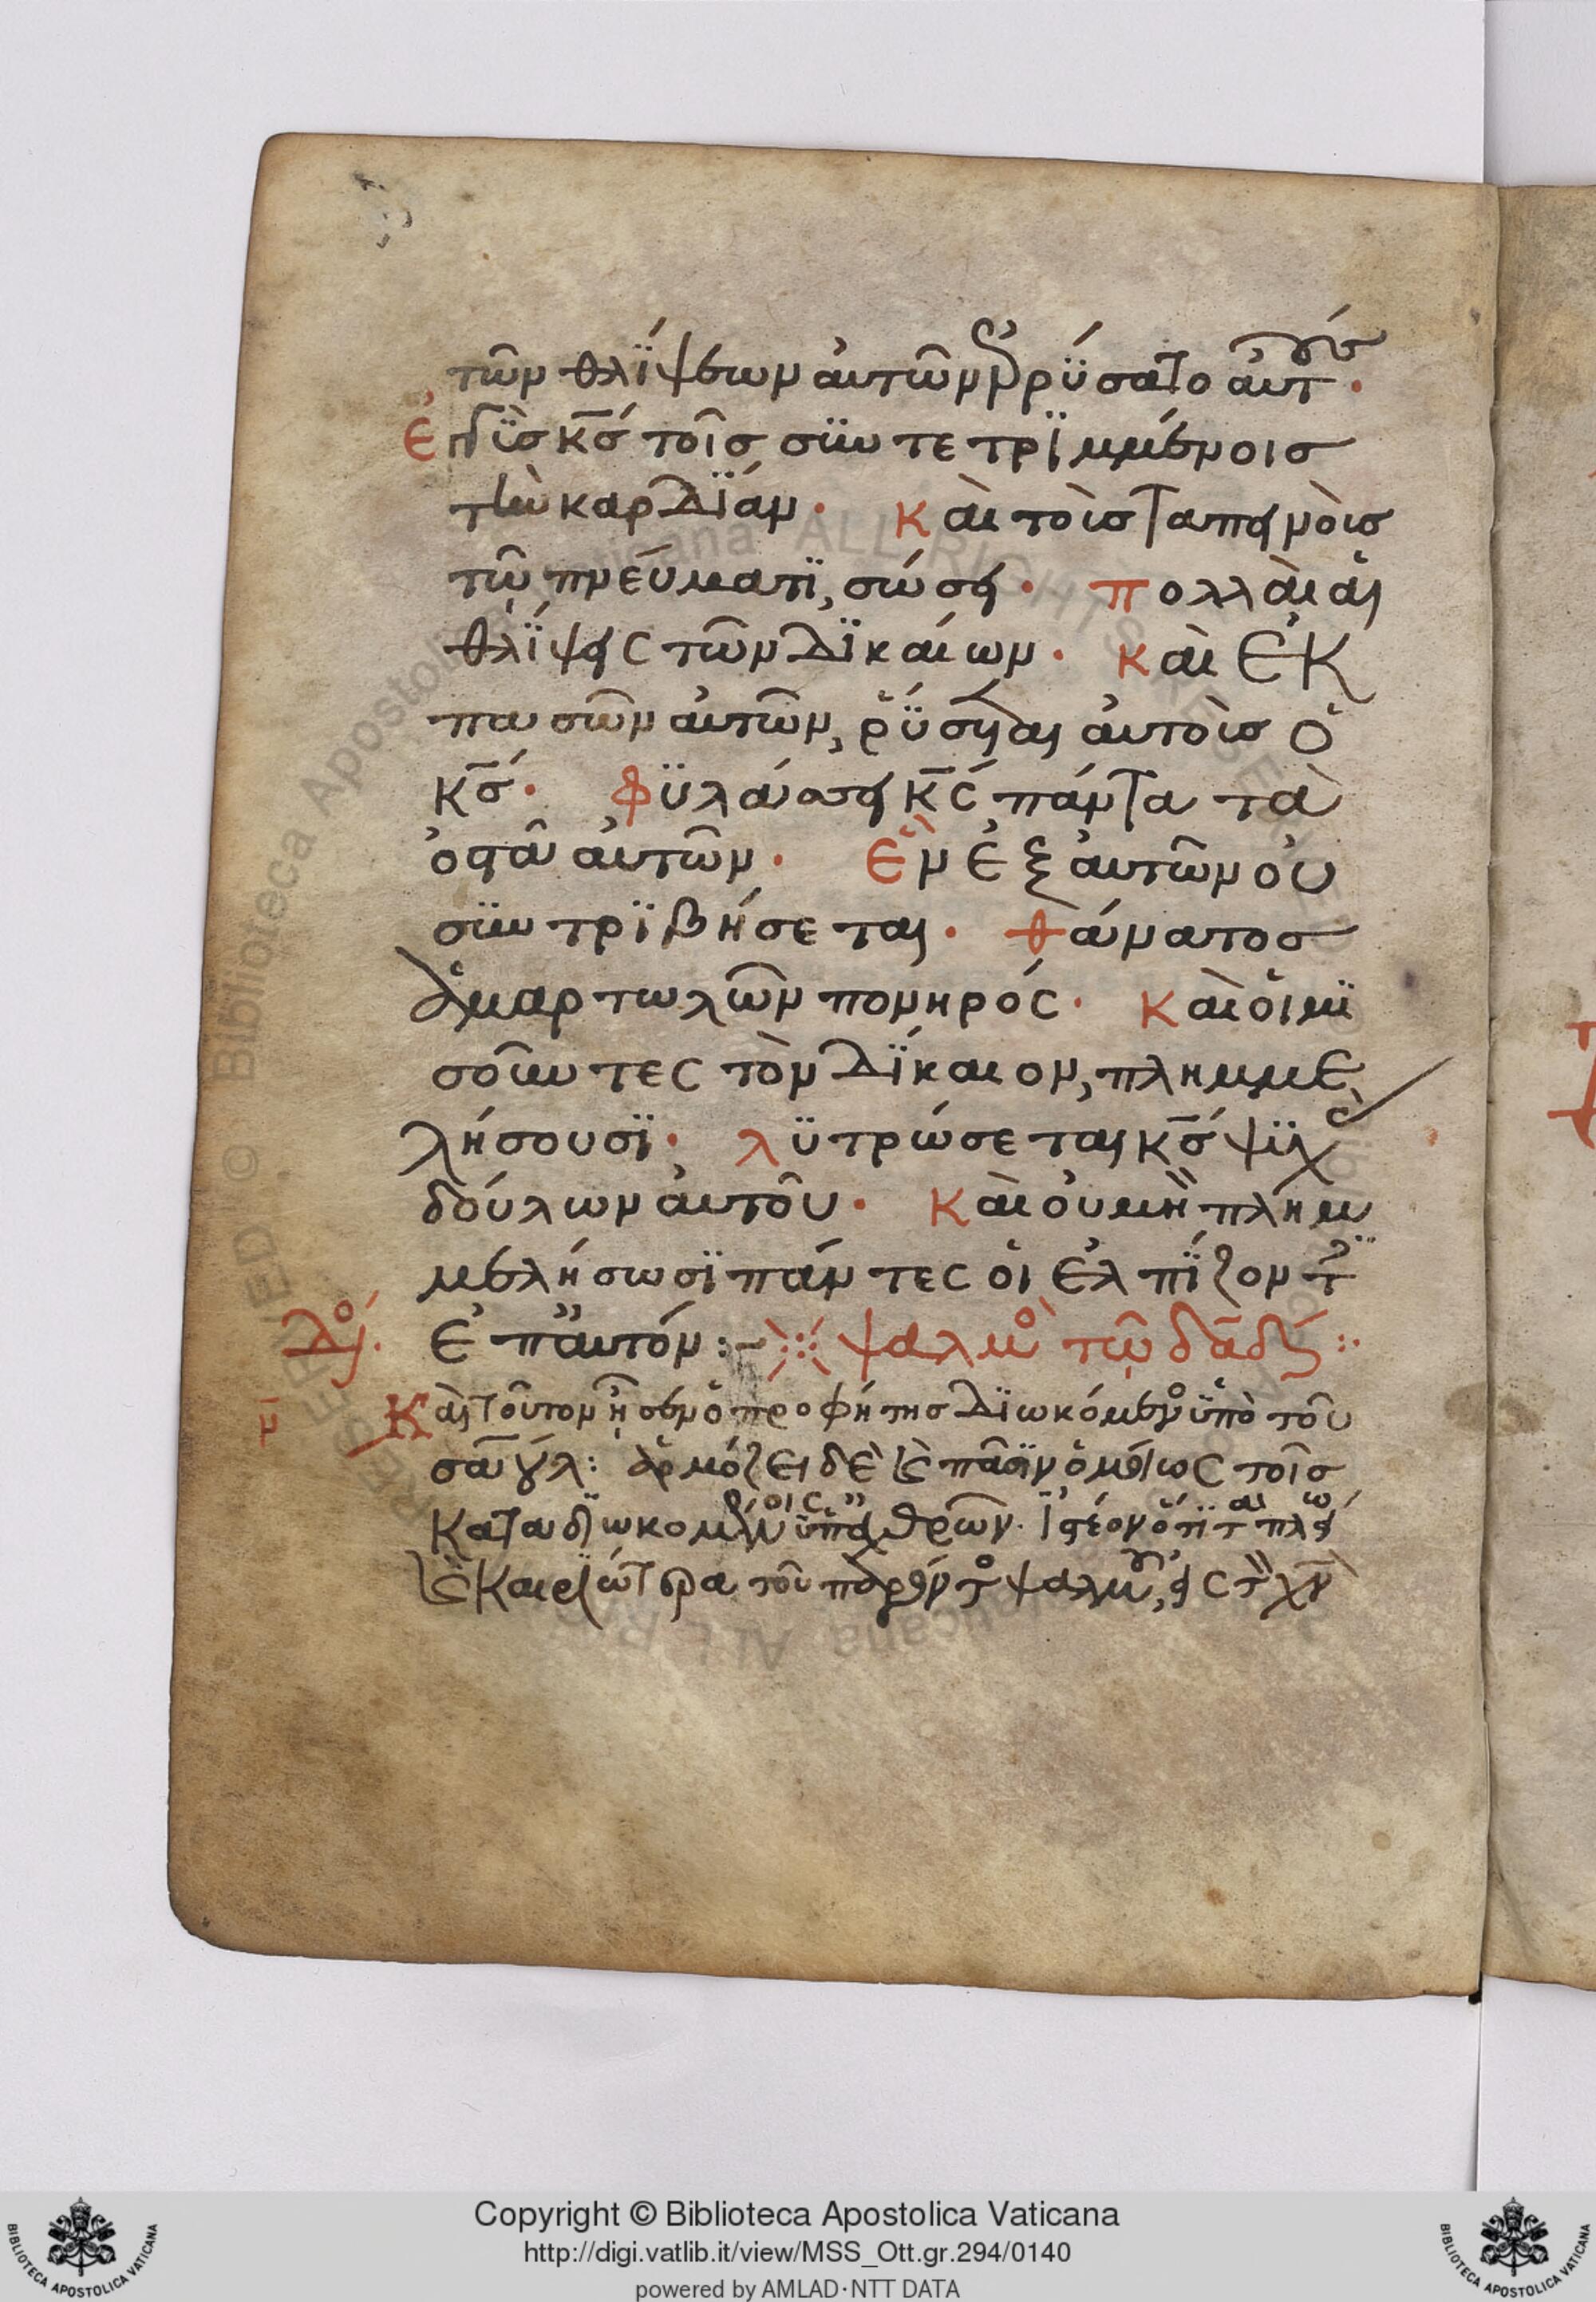 τῶν θλίψεων αὐτῶν ἐρρύσατο αὐτούς·
Ἐγγὺς κς τοῖς συντετριμμένοις
τὴν καρδίαν· Καὶ τοὺς ταπεινοὺς
τῷ πνεύματι, σώσει· Πολλαὶ αἱ
θλίψεις τῶν δικαίων· Καὶ ἐκ
πασῶν αὐτῶν, ῥύσεται αὐτοὺς ὁ
κς· Φυλάσσει κς πάντα τὰ
ὀστᾶ αὐτῶν· Ἓν ἐξ αὐτῶν οὐ
συντριβήσεται· Θάνατος
ἁμαρτωλῶν πονηρός· Καὶ οἱ μι
σοῦντες τὸν δίκαιον, πλημμε
λήσουσι· Λυτρώσεται κς ψυχὰς
δούλων αὐτοῦ· Καὶ οὐ μὴ πλημ
μελήσωσι πάντες οἱ ἐλπίζοντες
ἐπ' αὐτόν:- Ψαλμὸς τῷ δαδ:·
λδ·
Καὶ τοῦτον ᾖσεν ὁ προφήτης διωκόμενος ὑπὸ τοῦ
σαούλ: ἁρμόζει δὲ καὶ πᾶσιν ὁμοίως τοῖς
καταδιωκομένοις ὑπ' ἐχθρῶν. Ἰστέον ὅτι
τοῦ παρόντος ψαλμοῦ, εἰς τὸν χν
Copyright © Biblioteca Apostolica Vaticana
http://digi.vatlib.it/view/MSS_Ott.gr.294/0140
powered by AMLAD·NTT DATA